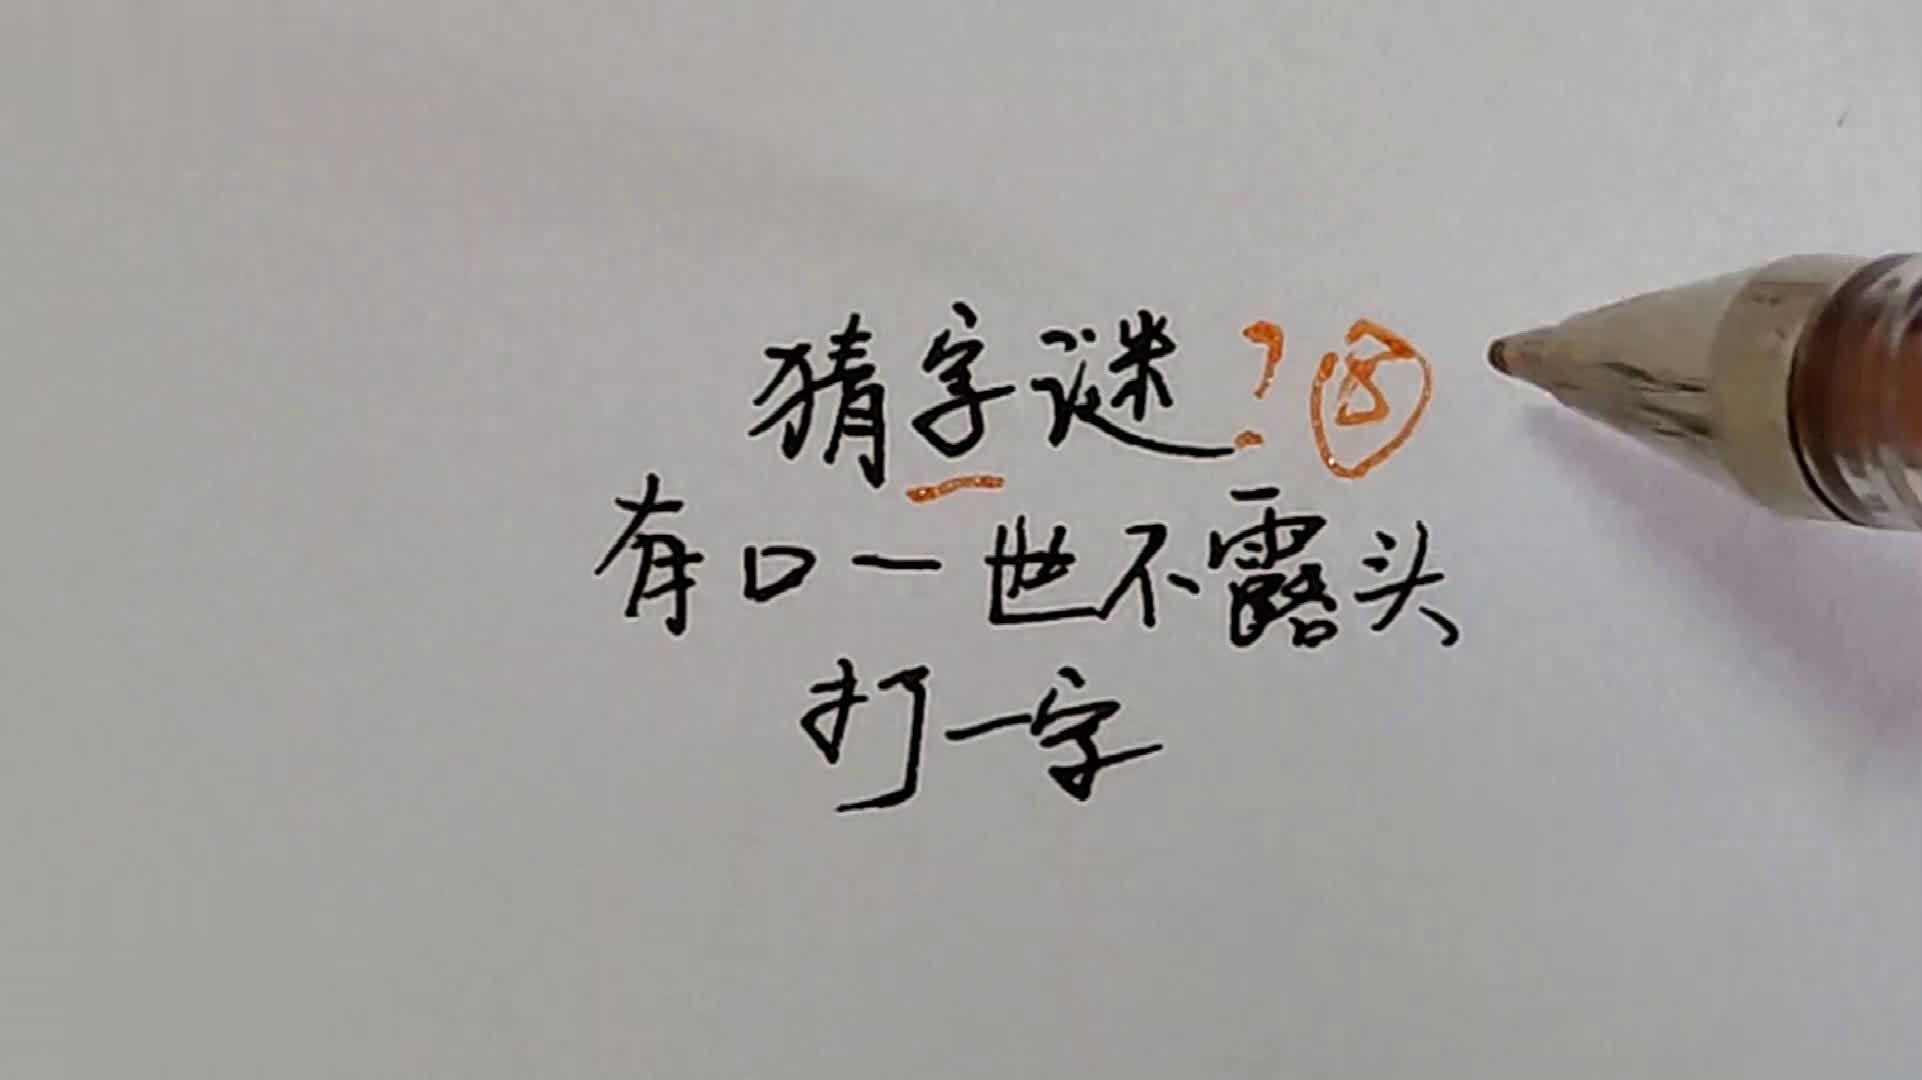 猜字谜?⑧
有口一世不露头
打一字